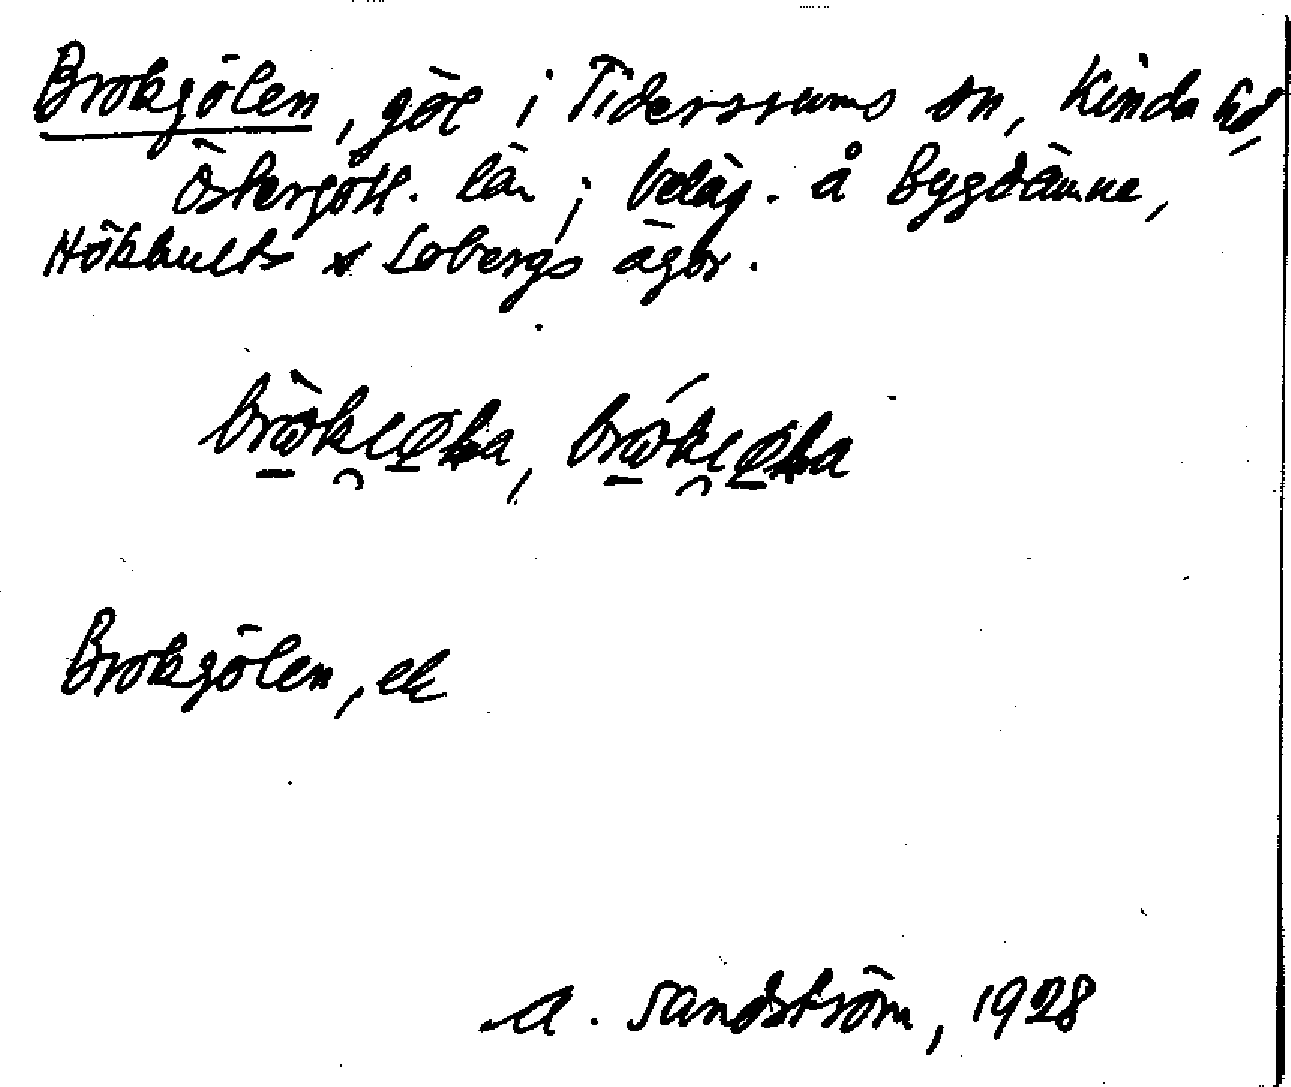 Brokgölen, göl i Tidersrums sn, Kinda hd,
Östergötl. län; beläg. å Bygdämne,
Hökhults o Lobergs ägor.
Brokgölen, ek
A. Sandström, 1928